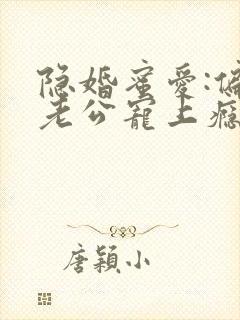 隐婚蜜爱:偏
老公宠上瘾
唐颖小